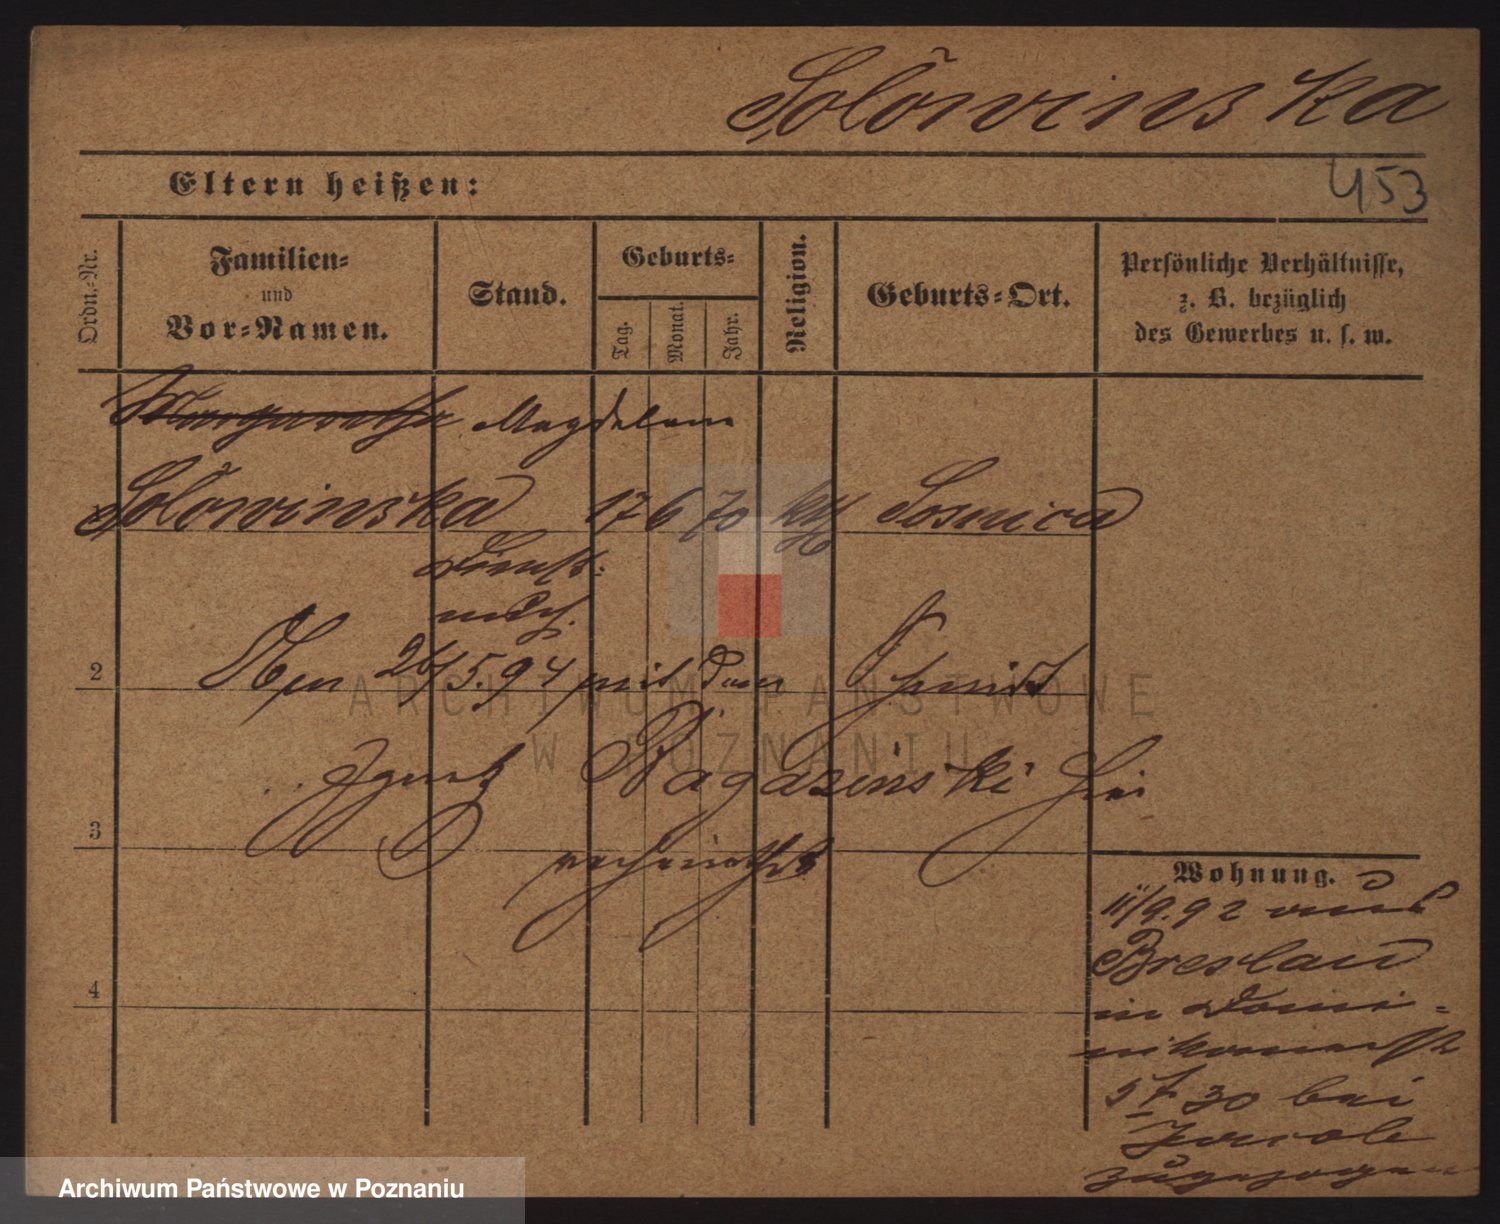 Solowinska
Eltern heißen:
453
Ordn.-Nr.
Familien-
und
Vor-Namen.
Stand.
Geburts-
Tag.
Monat.
Jahr.
Religion.
Geburts-Ort.
Persönliche Verhältnisse,
z. B. bezüglich
des Gewerbes u. s. w.
Margaretha Magdalena
1 Solowinska 17 6 70 kth Sosnica
Dienst-
mdch.
2 26/5.94 mit dem Schmied
ARCHIWUM PAŃSTWOWE
W POZNANIU
Ignatz Ragazinski hier
3
verheirathet
4
Wohnung.
11/9.92 aus
Breslau
in Domi-
30 bei
zugezogen
Archiwum Państwowe w Poznaniu